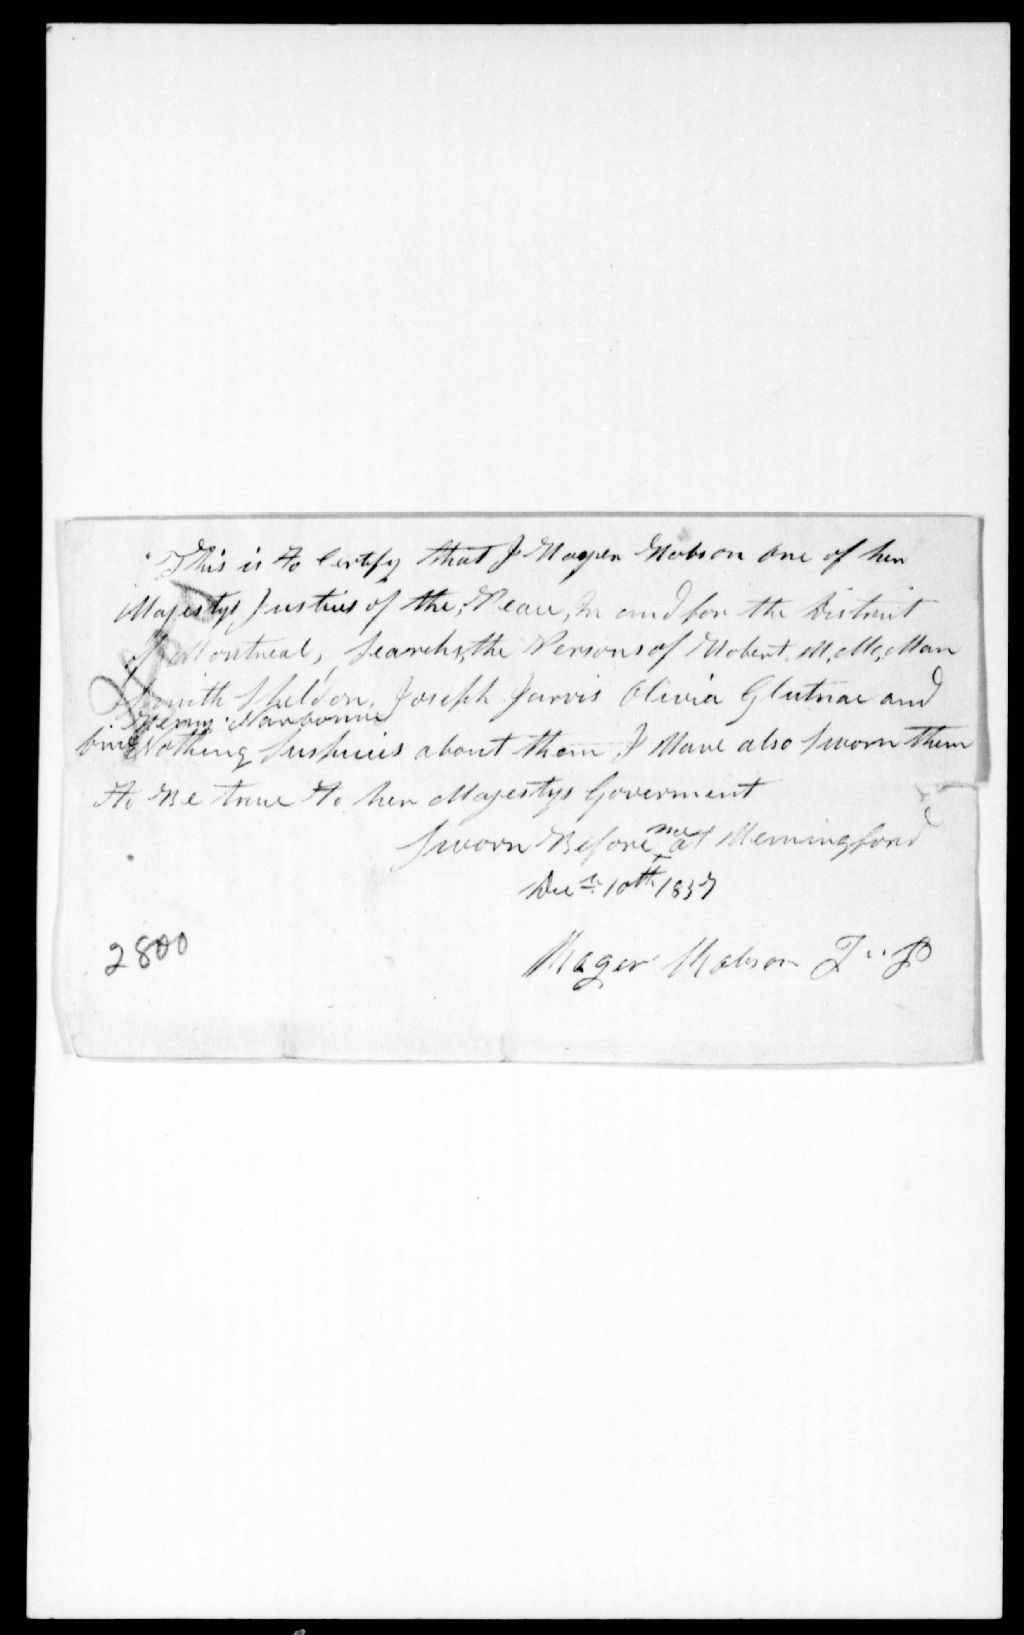 This is to Certify that I Hobson one of her
Majestys Justices of the Peace, In and for the District
of Montreal, Search the Persons of Robert Mc. Man
Smith Sheldon, Joseph Jarvis Olivia and
Henry Narbonne
find Nothing about them I Have also Sworn them
to Be true to her Majestys Goverment
Sworn Before me at Hemingford
Decr. 10th 1837
2800
Hobson J " P